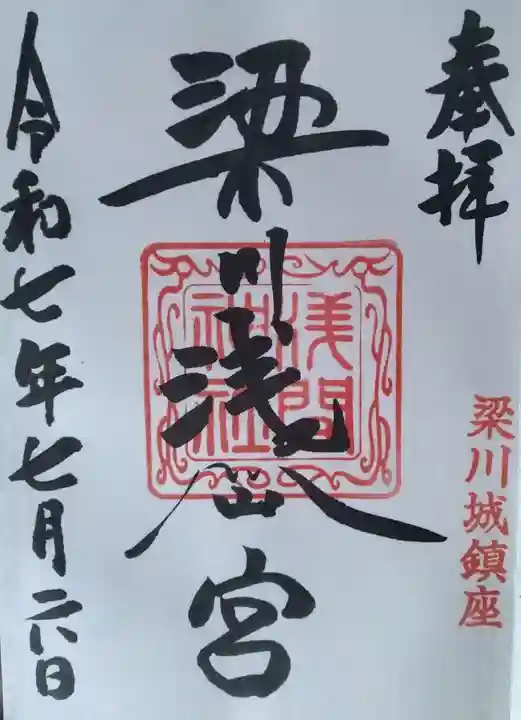 奉拝
梁川城鎮座
梁川浅仚宮
浅間
神社
令和七年七月二八日